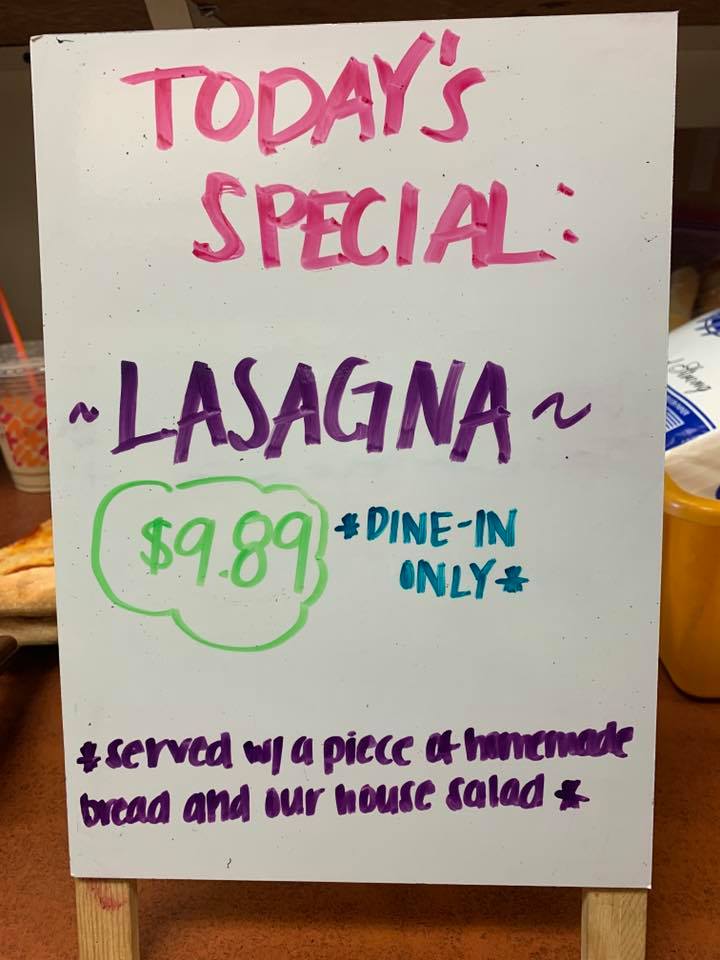 TODAY'S
SPECIAL:
~LASAGNA~
$9.89 *DINE-IN
ONLY*
*served w/ a piece of homemade
bread and our house salad*